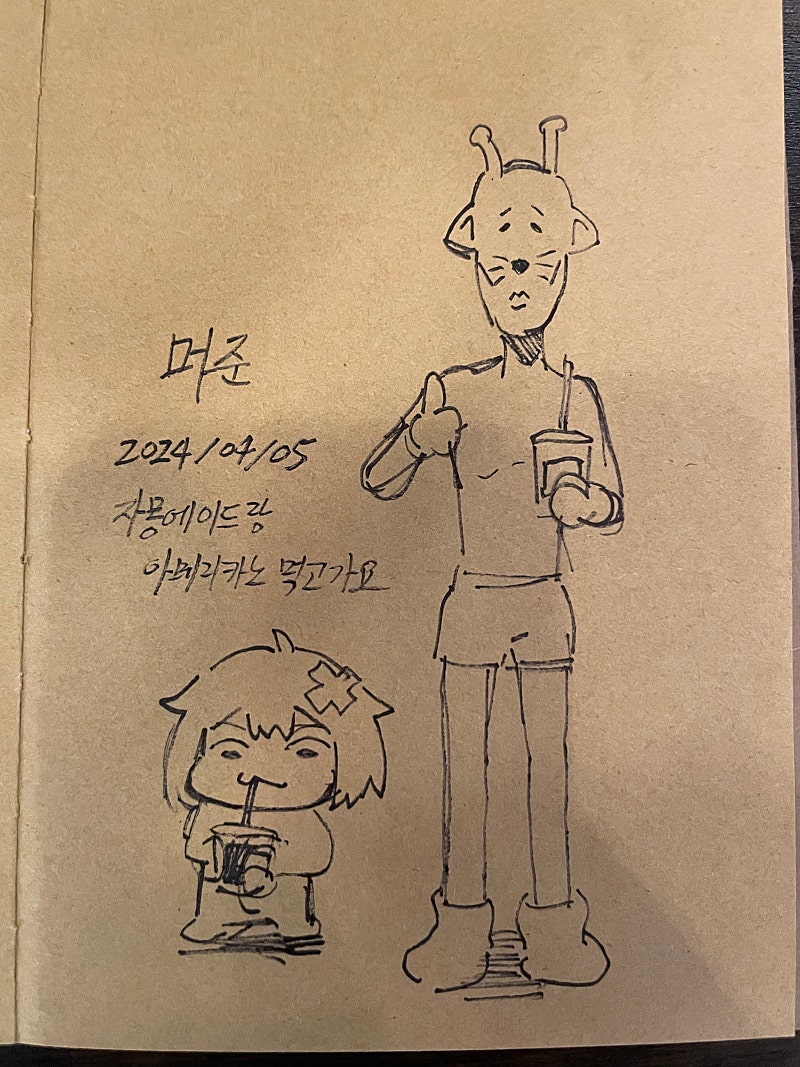 머준
2024/04/05
자몽에이드랑
아메리카노 먹고가요